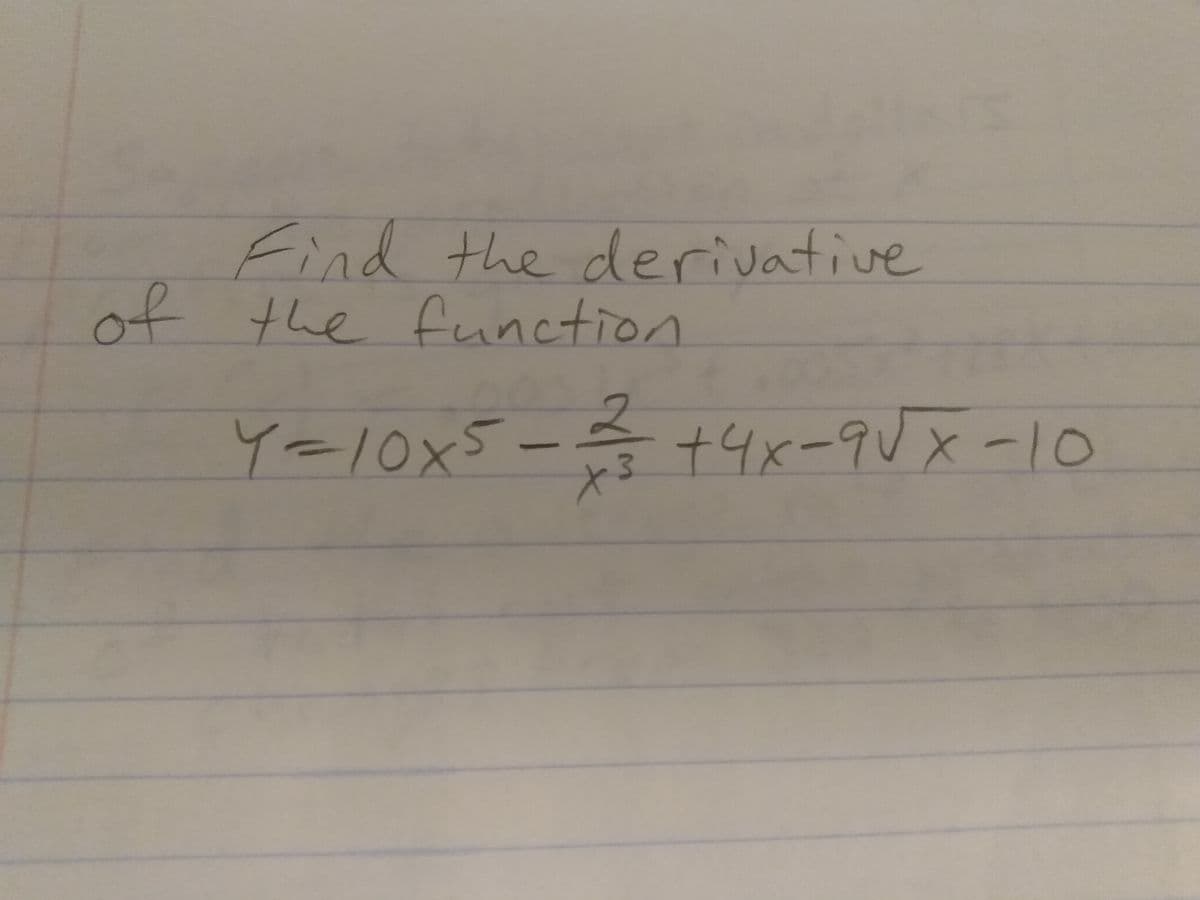 Find the derivative
of the function
Y=10x⁵ - 2/x³ +4x-9√x -10